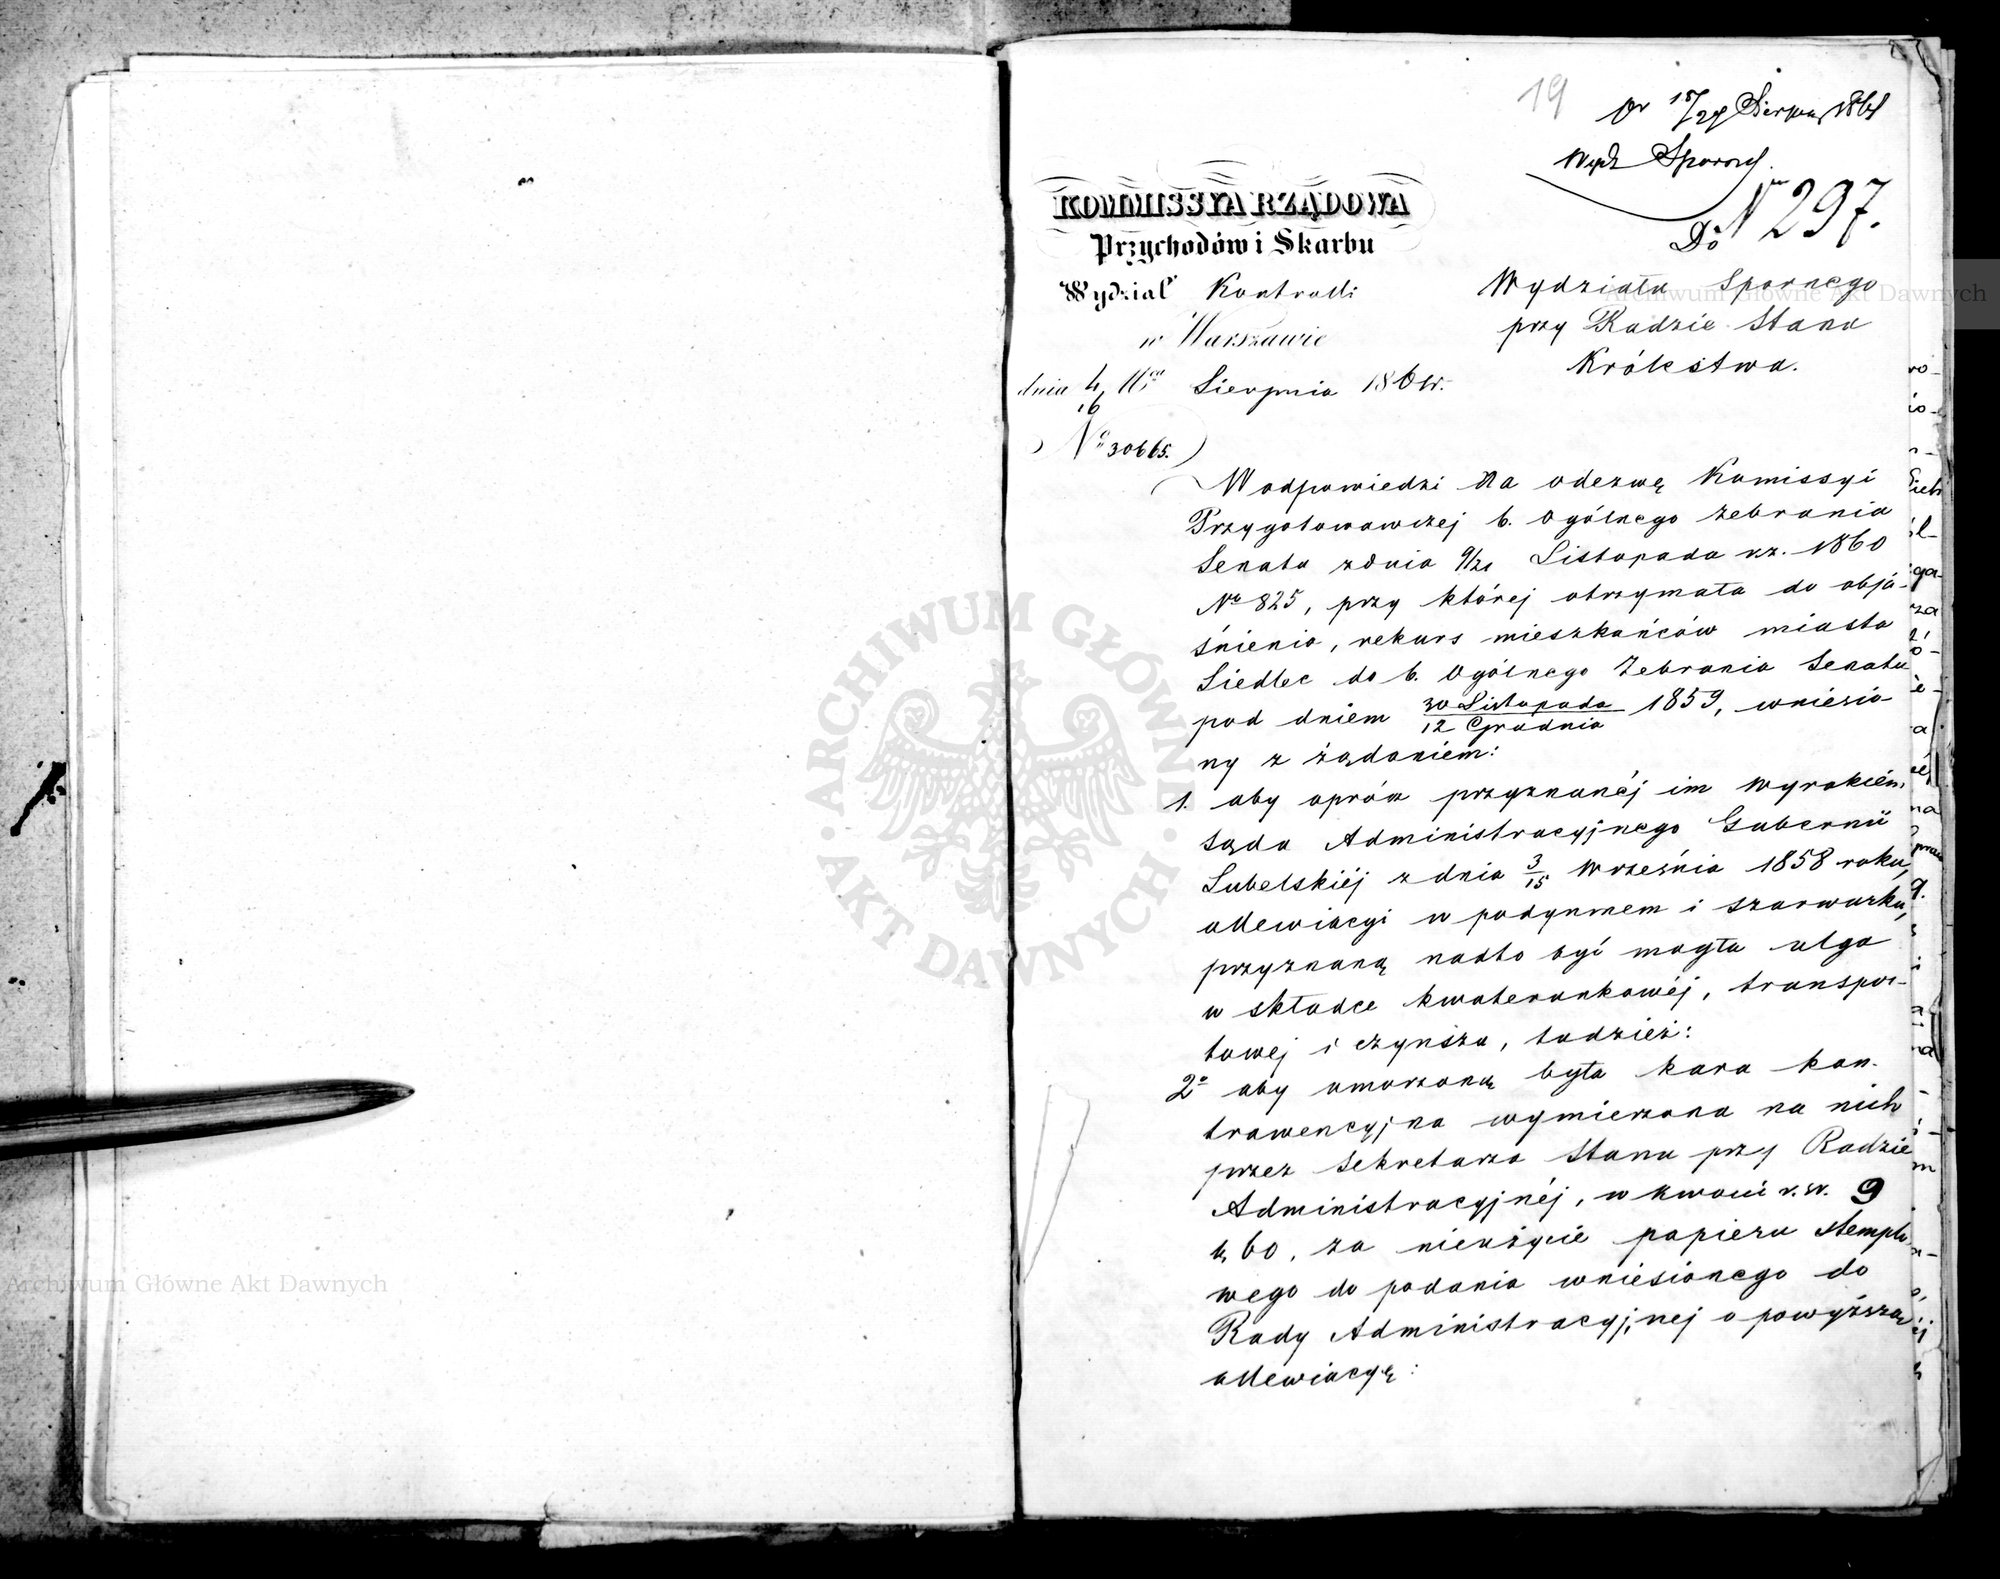 19
15/27 Sierpnia 1861
Wydz Sporny
N 297.
KOMMISSYA RZĄDOWA
Przychodów i Skarbu
Wydział Kontrolli
w Warszawie
dnia 4/16 Mca Sierpnia 1861 r.
No 30665.
Do
Wydziału Spornego
przy Radzie Stanu
Królestwa.
W odpowiedzi na odezwę Komissyi
Przygotowawczej b. Ogólnego Zebrania
Senatu z dnia 9/21 Listopada rz. 1860
No 825, przy której otrzymała do obja-
śnienia, rekurs mieszkańców miasta
Siedlec do b. Ogólnego Zebrania Senatu
pod dniem 30 Listopada / 12 Grudnia 1859, wniesio-
ny z żądaniem:
1. aby oprócz przyznanéj im Wyrokiem
Sądu Administracyjnego Gubernii
Lubelskiéj z dnia 3/15 Września 1858 roku,
allewiacyi w podymnem i szarwarku,
przyznaną nadto być mogła ulga
w składce kwaterunkowéj, transpor-
towej i czynszu, tudzież:
2o aby umorzoną była kara kon-
trawencyjna wymierzona na nich
przez Sekretarza Stanu przy Radzie
Administracyjnéj, w kwocie r. sr. 9
k. 60, za nieużycie papieru stemplo
wego do podania wniesionego do
Rady Administracyjnej o powyższą
allewiacyę:
ARCHIWUM GŁÓWNE AKT DAWNYCH
Archiwum Główne Akt Dawnych
Archiwum Główne Akt Dawnych